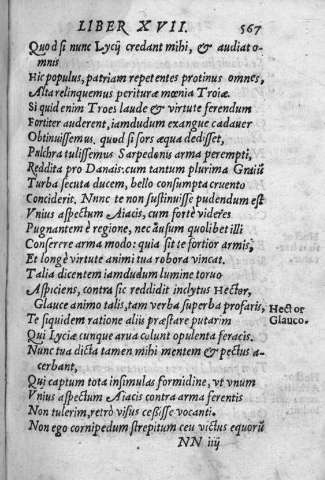 LIBER XVII. 567
Quod si nunc Lycij credant mihi, & audiat o-
mnis
Hic populus, patriam repetentes protinus omnes,
Alta relinquemus perituræ mœnia Troiæ.
Si quid enim Troes laude & virtute ferendum
Fortiter auderent, iamdudum exangue cadauer
Obtinuissemus. quod si sors æqua dedisset,
Pulchra tulissemus Sarpedonis arma perempti,
Reddita pro Danais: cum tantum plurima Graiũ
Turba secuta ducem, bello consumpta cruento
Conciderit. Nnnc te non sustinuisse pudendum est
Vnius aspectum Aiacis, cum fortè videres
Pugnantem è regione, nec ausum quolibet illi
Conserere arma modo: quia sit te fortior armis,
Et longè virtute animi tua robora vincat.
Talia dicentem iamdudum lumine toruo
Aspiciens, contra sic reddidit inclytus Hector,
Glauce animo talis, tam verba superba profaris,
Hector
Glauco.
Te siquidem ratione alijs præstare putarim
Qui Lyciæ cunque arua colunt opulenta feracis.
Nunc tua dicta tamen mihi mentem & pectus a-
cerbant,
Qui captum tota insimulas formidine, vt vnum
Vnius aspectum Aiacis contra arma ferentis
Non tulerim, retrò visus cessisse vocanti.
Non ego cornipedum strepitum ceu victus equorũ
NN iiij